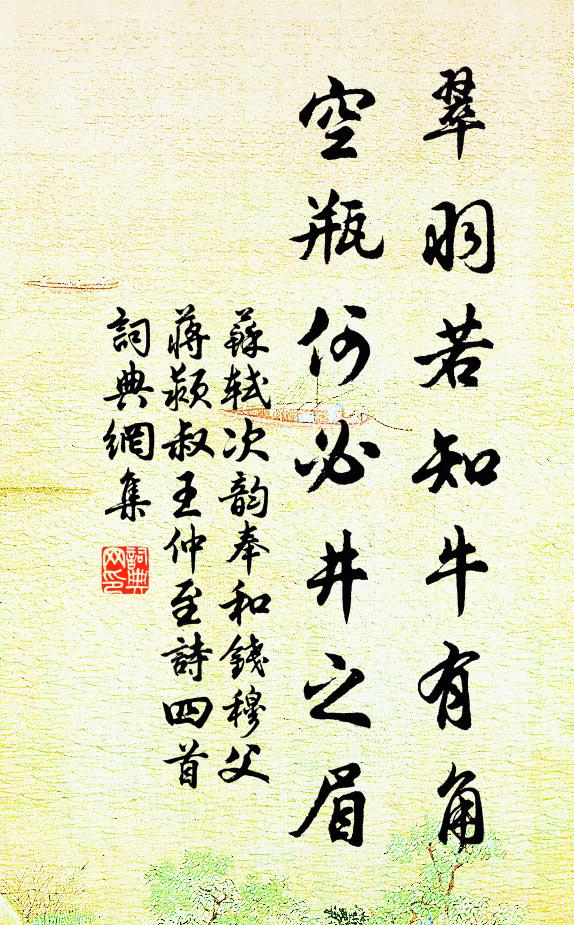 翠羽若知牛有角
空瓶何必井之眉
蘇軾次韵奉和錢穆父
蔣潁叔王仲至詩四首
詞典網集
詞典网印